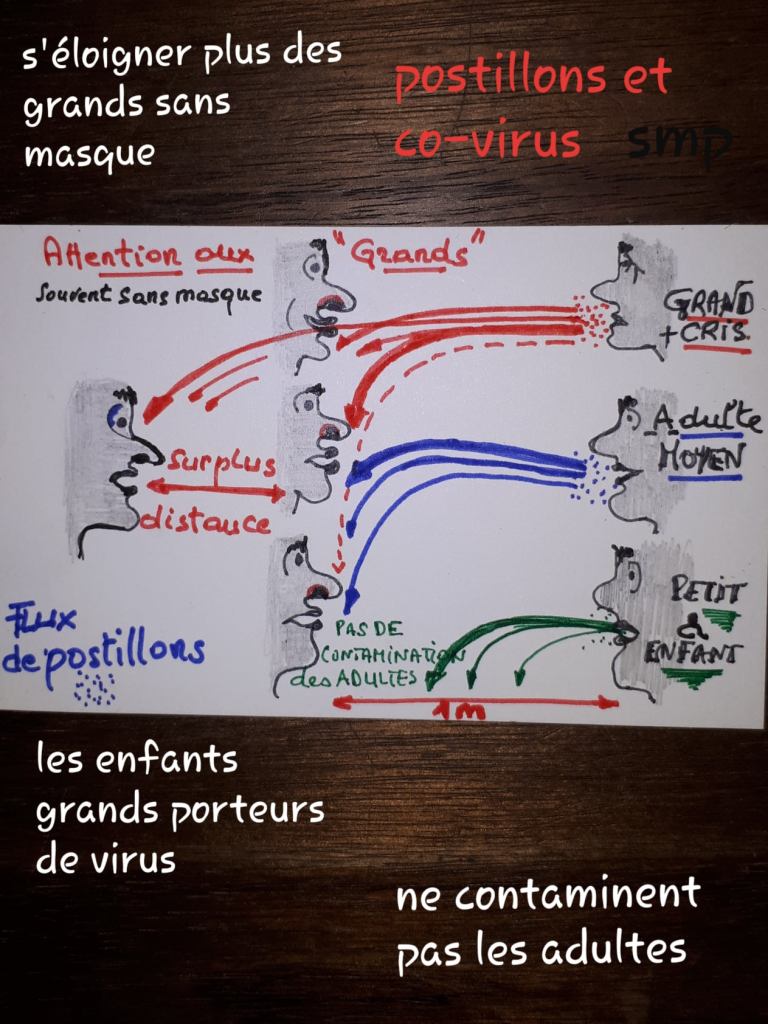 s'éloigner plus des
grands sans
masque
postillons et
co-virus smp
Attention aux "Grands"
Souvent sans masque
GRAND
+ CRIS
Adulte
MOYEN
Surplus
distance
PETIT
&
ENFANT
Flux
de postillons
PAS DE
CONTAMINATION
des ADULTES
1m
les enfants
grands porteurs
de virus
ne contaminent
pas les adultes